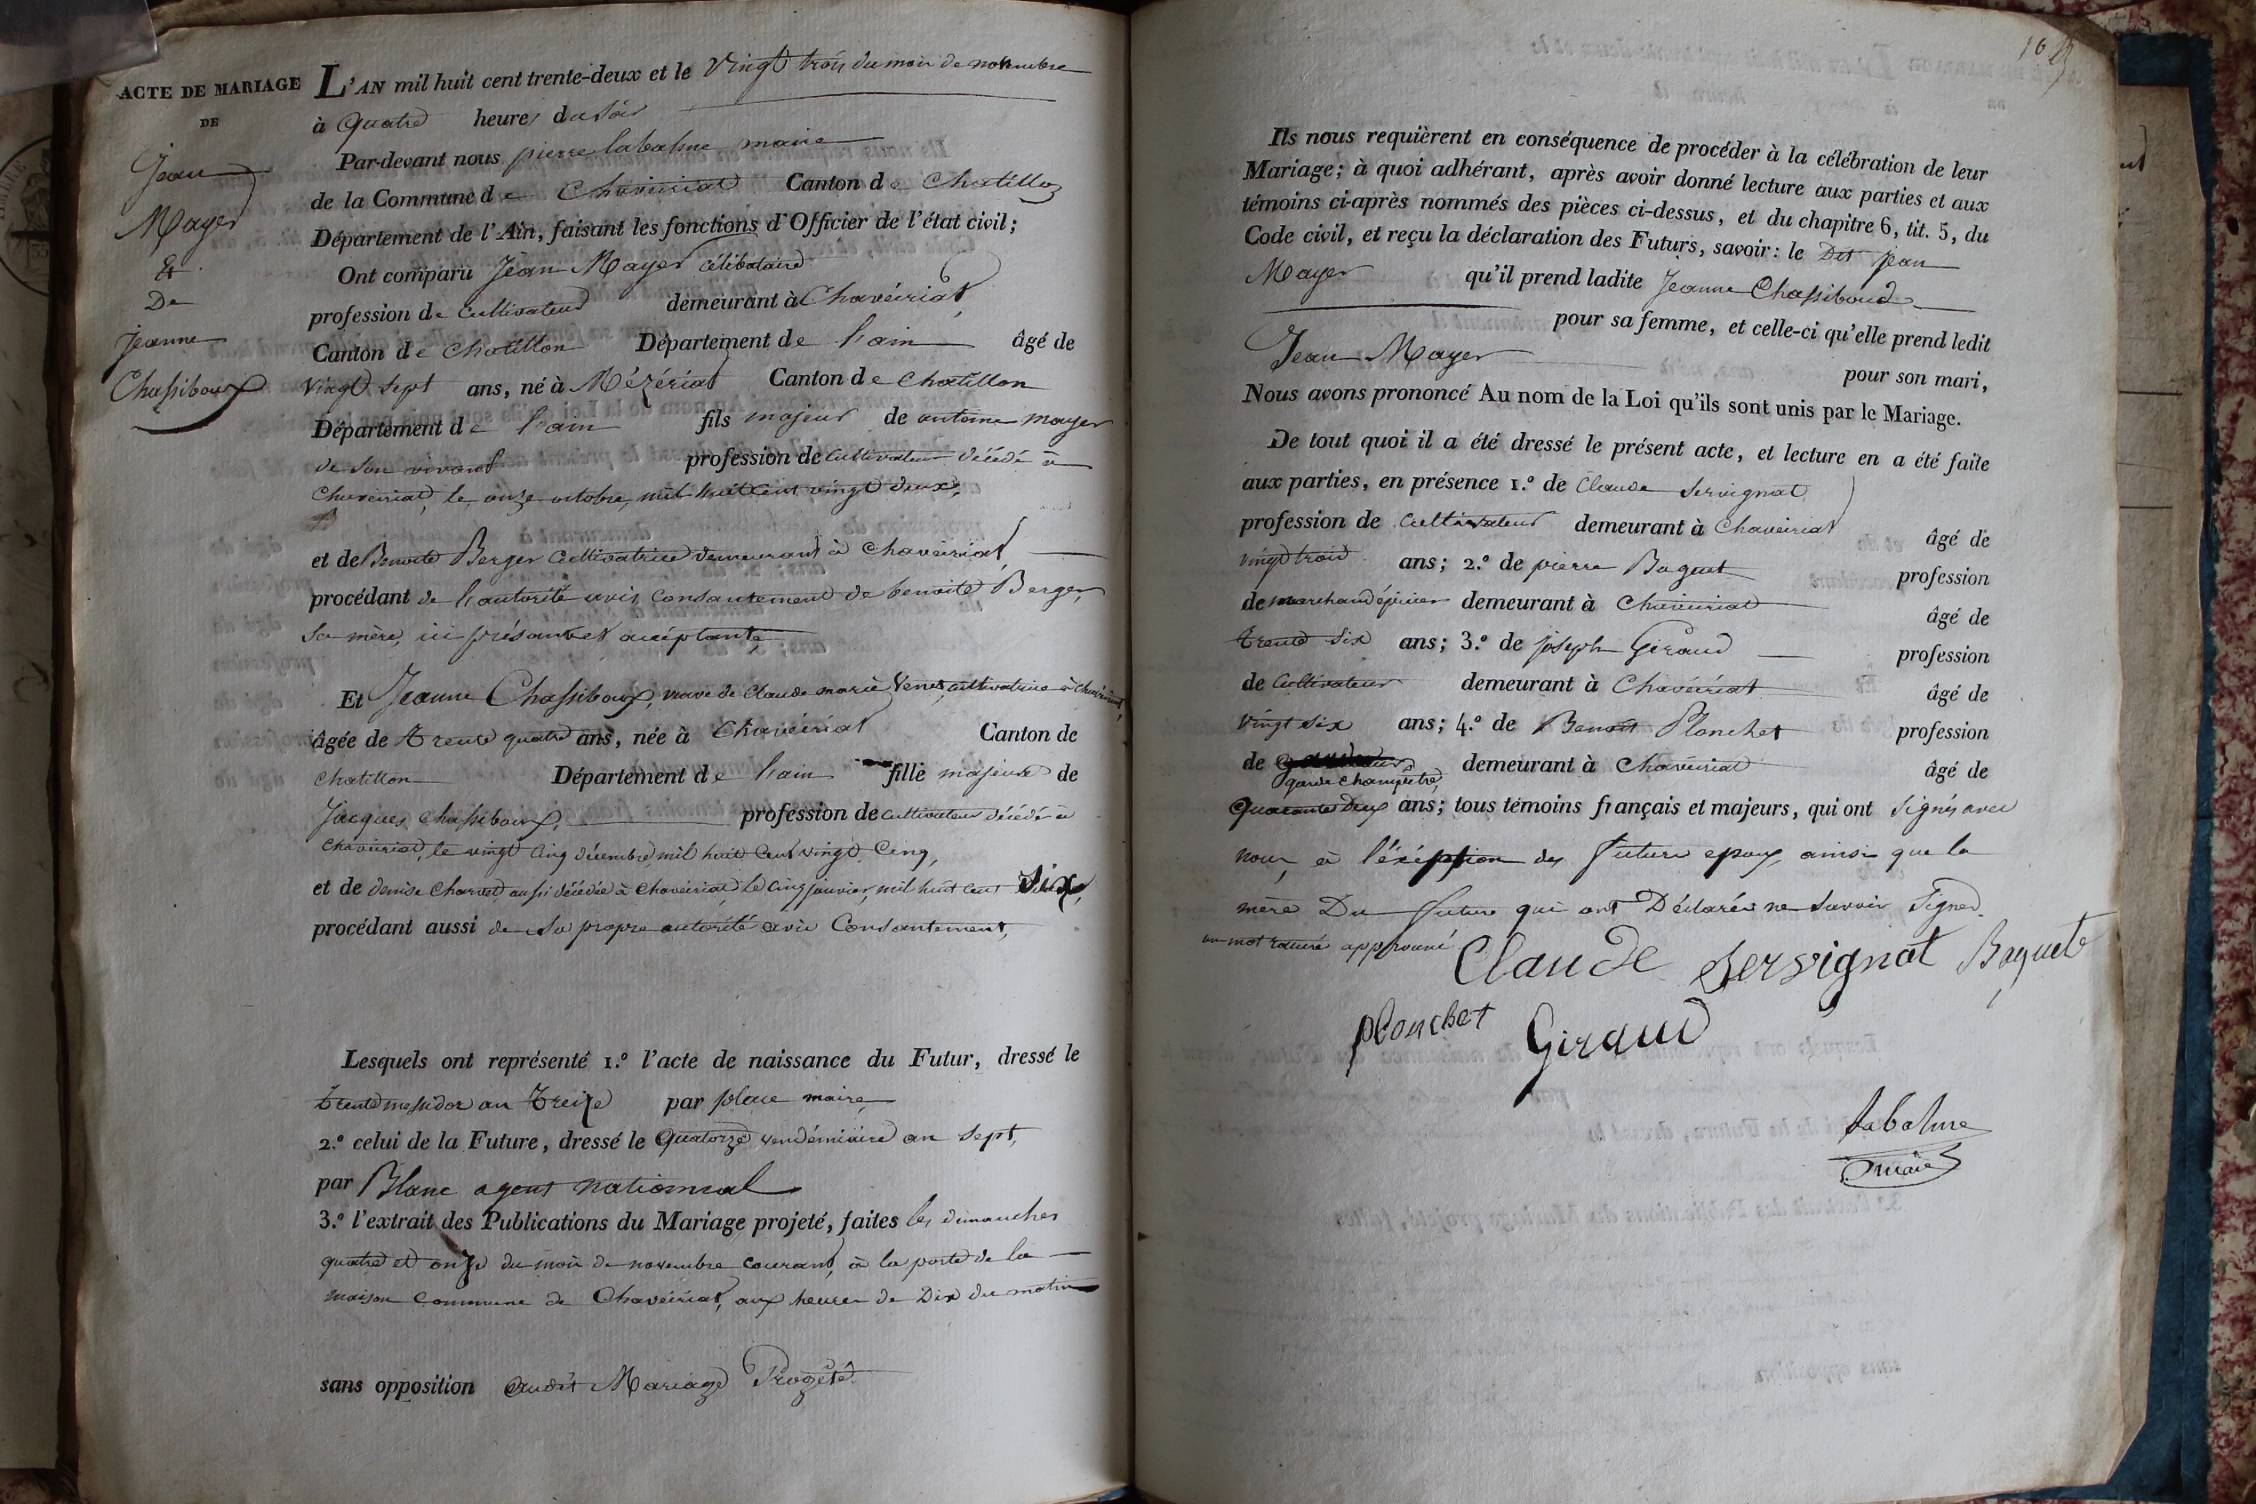 ACTE DE MARIAGE
DE
Jean
Mayer
Et
De
Jeanne
Chassiboux
L'AN mil huit cent trente-deux et le vingt trois du mois de novembre
à quatre heures du soir
Par-devant nous pierre labalme maire
de la Commune de Chavéiriat Canton de Chatillon
Département de l'Ain, faisant les fonctions d'Officier de l'état civil;
Ont comparu Jean Mayer célibataire
profession de Cultivateur demeurant à Chavéiriat,
Canton de Chatillon Département de l'ain âgé de
vingt sept ans, né à Mézériat Canton de Chatillon
Département de l'ain fils majeur de antoine mayer
de son vivant profession de Cultivateur décédé à
Chavéiriat, le onze octobre, mil huit cent vingt deux,
et de Benoite Berger Cultivatrice demeurant à Chavéiriat,
procédant de l'autorité avis consantement de benoite Berger,
sa mère, ici présante et accéptante,
Et Jeanne Chassiboux, veuve de Claude marie Venet, cultivatrice à Chavéiriat,
âgée de trente quatre ans, née à Chavéiriat Canton de
Chatillon Département de l'ain fille majeure de
Jacques Chassiboux, profession de Cultivateur décédé à
Chavéiriat, le vingt cinq décembre mil huit cent vingt cinq,
et de denise Charvet aussi décédée à Chavéiriat, le cinq janvier, mil huit cent six,
procédant aussi de sa propre autorité avis Consantement,
Lesquels ont représenté 1.º l'acte de naissance du Futur, dressé le
trente messidor an treize par place maire,
2.º celui de la Future, dressé le quatorze vendémiaire an sept,
par Blanc agent nationnal
3.º l'extrait des Publications du Mariage projeté, faites les dimanches
quatre et onze du mois de novembre courant, à la porte de la
maison commune de Chavéiriat, aux heures de Dix du matin
sans opposition audit Mariage Progété.
16
Ils nous requièrent en conséquence de procéder à la célébration de leur
Mariage; à quoi adhérant, après avoir donné lecture aux parties et aux
témoins ci-après nommés des pièces ci-dessus, et du chapitre 6, tit. 5, du
Code civil, et reçu la déclaration des Futurs, savoir: le Dit Jean
Mayer qu'il prend ladite Jeanne Chassiboud
pour sa femme, et celle-ci qu'elle prend ledit
Jean Mayer pour son mari,
Nous avons prononcé Au nom de la Loi qu'ils sont unis par le Mariage.
De tout quoi il a été dressé le présent acte, et lecture en a été faite
aux parties, en présence 1.º de Claude Servignat
profession de Cultivateur demeurant à Chavéiriat âgé de
vingt trois ans; 2.º de pierre Baguet profession
de marchand épicier demeurant à Chavéiriat âgé de
trente six ans; 3.º de joseph Giraud profession
de Cultivateur demeurant à Chavéiriat âgé de
vingt six ans; 4.º de Benoit Planchet profession
de demeurant à Chavéiriat âgé de
garde champêtre,
quarante deux ans; tous témoins français et majeurs, qui ont signés avec
nous, à l'exéption des future epoux, ainsi que la
mère Du future qui ont Déclarés ne savoir Signer.
un mot rature approuvé
Claude Servignat Baguet
planchet Giraud
Labalme
maire